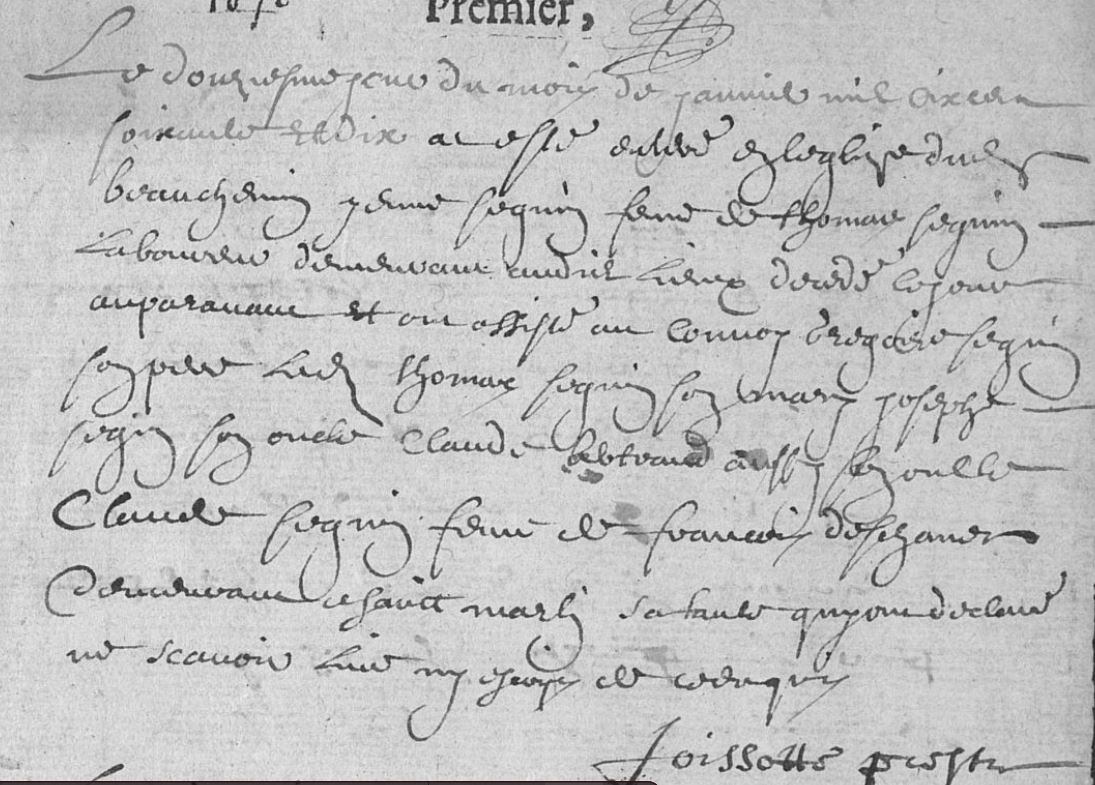 1670 Premier,
Le douziesme jour du mois de janvie mil six cen
soixante et dix a esté enterré en leglise dud
beauchemin jenne seguin feme de thomas seguin
Laboureu demeurant audict Lieux decedé le jour
auparavant et ont assisté au convoy Gregoire seguin
son pere Led thomas seguin son mary josephe
seguin son oncle Claude bertrand aussy son oulcle
Claude seguin feme de francois deschanet
demeurant a sainct martin sa tante quy ont declaré
ne scavoir Lire ny escripre de ce enquis
Joissotte prestre